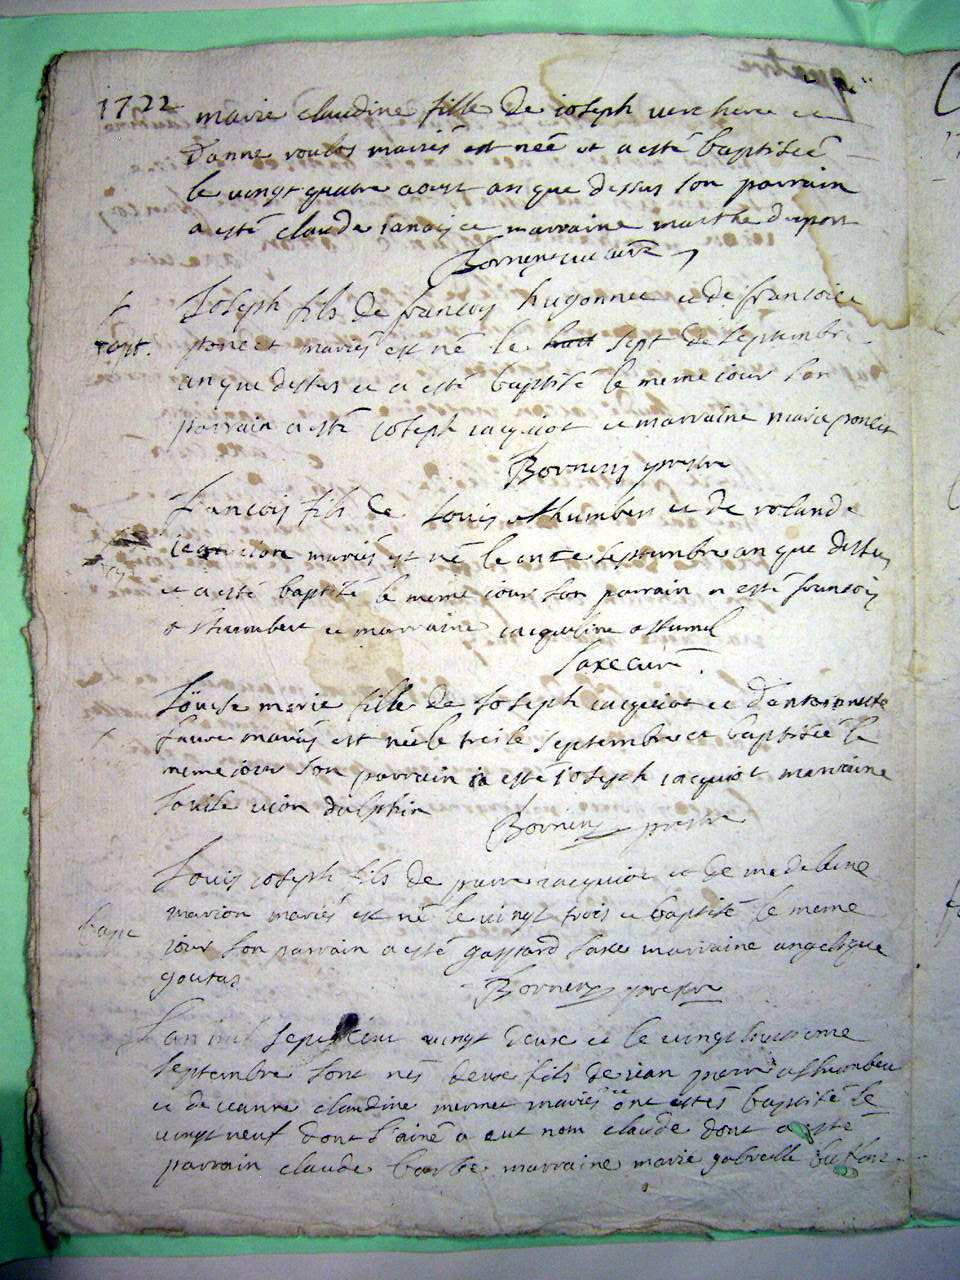 1722
marie claudine fille de ioseph verchere et
danne roulos mariés est née et a esté baptisée
le vingt quatre aoust an que dessus son parrain
a esté claude marraine marthe dupon
curé
Ioseph fils de francois hugonnet et de francoise
poncet mariés est né le huit sept de septembre
an que dessus et a esté baptisé le meme iour son
parrain a esté ioseph iacquiot et marraine marie poncet
Bornery prestre
francois fils de Louis et de rolande
mariés est né le onze septembre an que dessus
et a esté baptisé le meme iour son parrain a esté francois
et marraine iacqueline
Saxe curé.
Loüise marie fille de Ioseph iacquiot et dantoinette
favre mariés est née le treise septembre et baptisée le
meme iour son parrain a esté ioseph iacquiot marraine
Louise vion dalphin
Bornery prestre
Louis ioseph fils de pierre iacquiot et de madelaine
marion mariés est né le vingt trois et baptisé le meme
iour son parrain a esté gaspard Saxe marraine angelique
goutas
Bornery prestre
Lan mil sept cent vingt deux et le vingt huitieme
septembre sont nés deux fils de iean pierre
et de ieanne claudine mermet mariés et ont estés baptisé le
vingt neuf dont l'ainé a eut nom claude dont a esté
parrain claude barbe marraine marie gabrielle